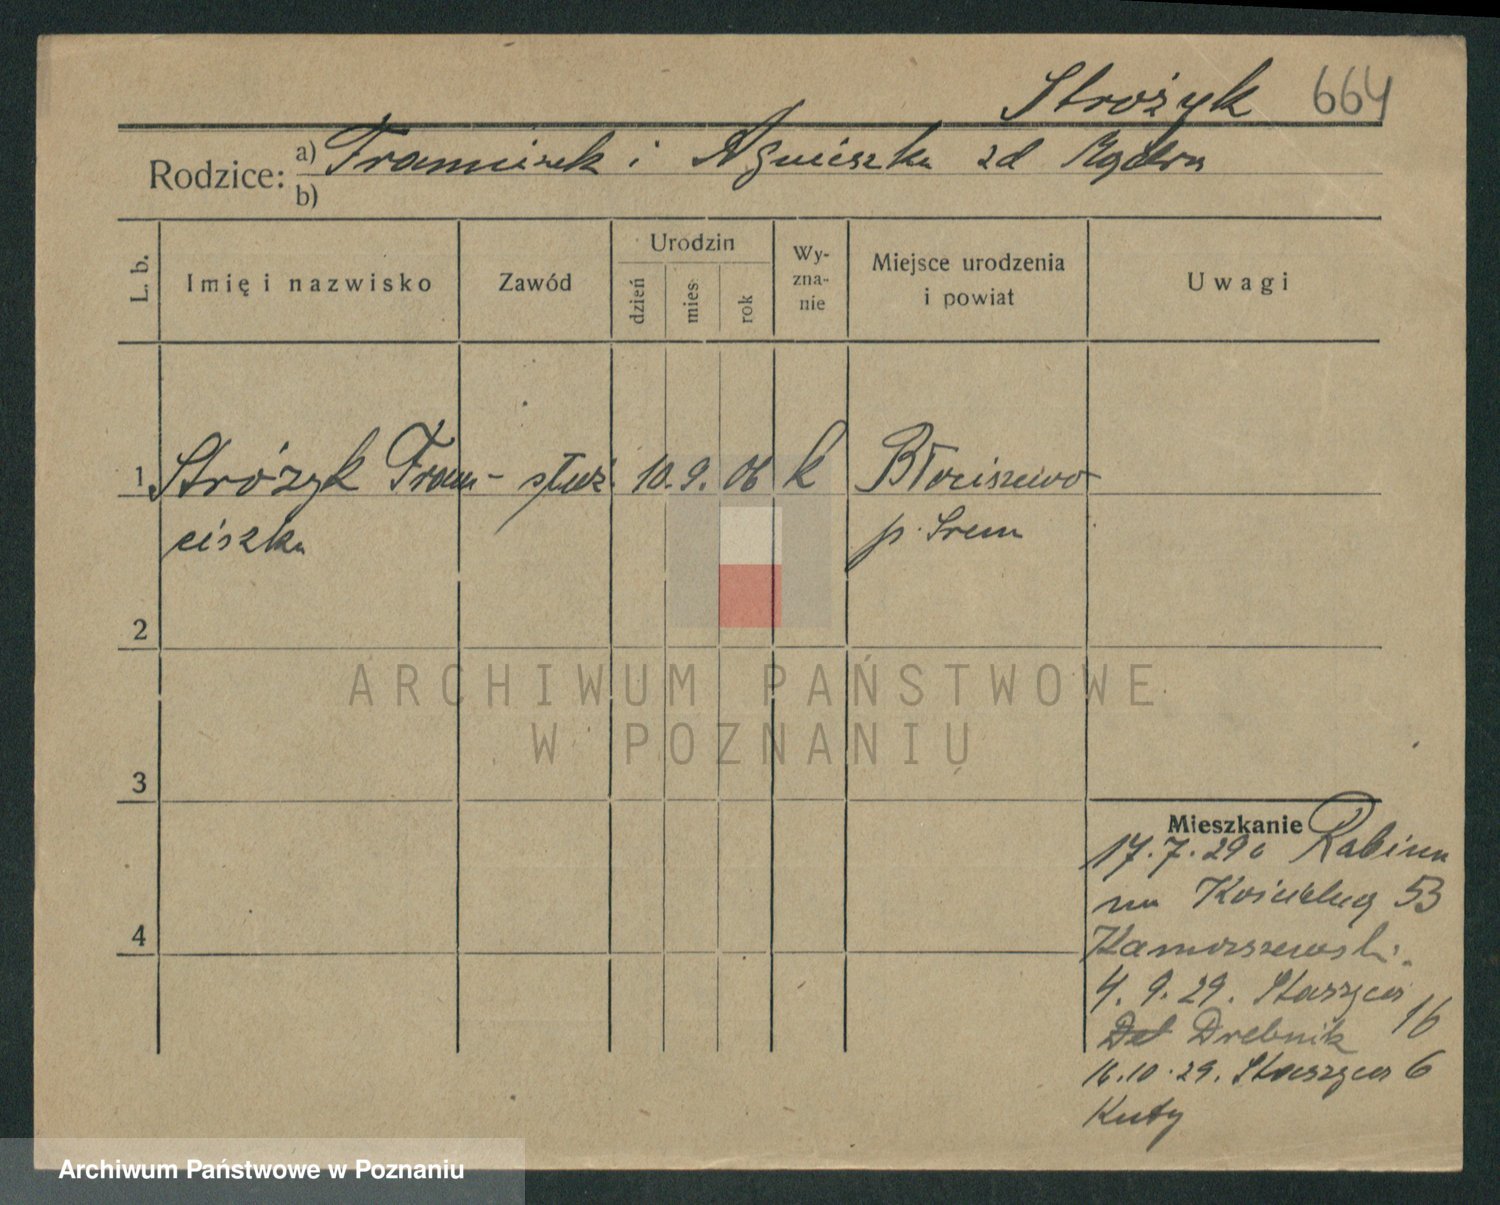 Strożyk 664
Rodzice: a) Franciszek i Agnieszka zd
b)
L. b.
Imię i nazwisko
Zawód
Urodzin
dzień
mies.
rok
Wy-
zna-
nie
Miejsce urodzenia
i powiat
Uwagi
1 Stróżyk Fran- służ. 10. 9. 06 k Błociszewo
ciszka p. Śrem
2
3
4
Mieszkanie
17. 7. 29
Kościelną 53
4. 9. 29. Staszyca 16
Drebnik
16. 10. 29. Staszyca 6
Kuty
ARCHIWUM PAŃSTWOWE
W POZNANIU
Archiwum Państwowe w Poznaniu